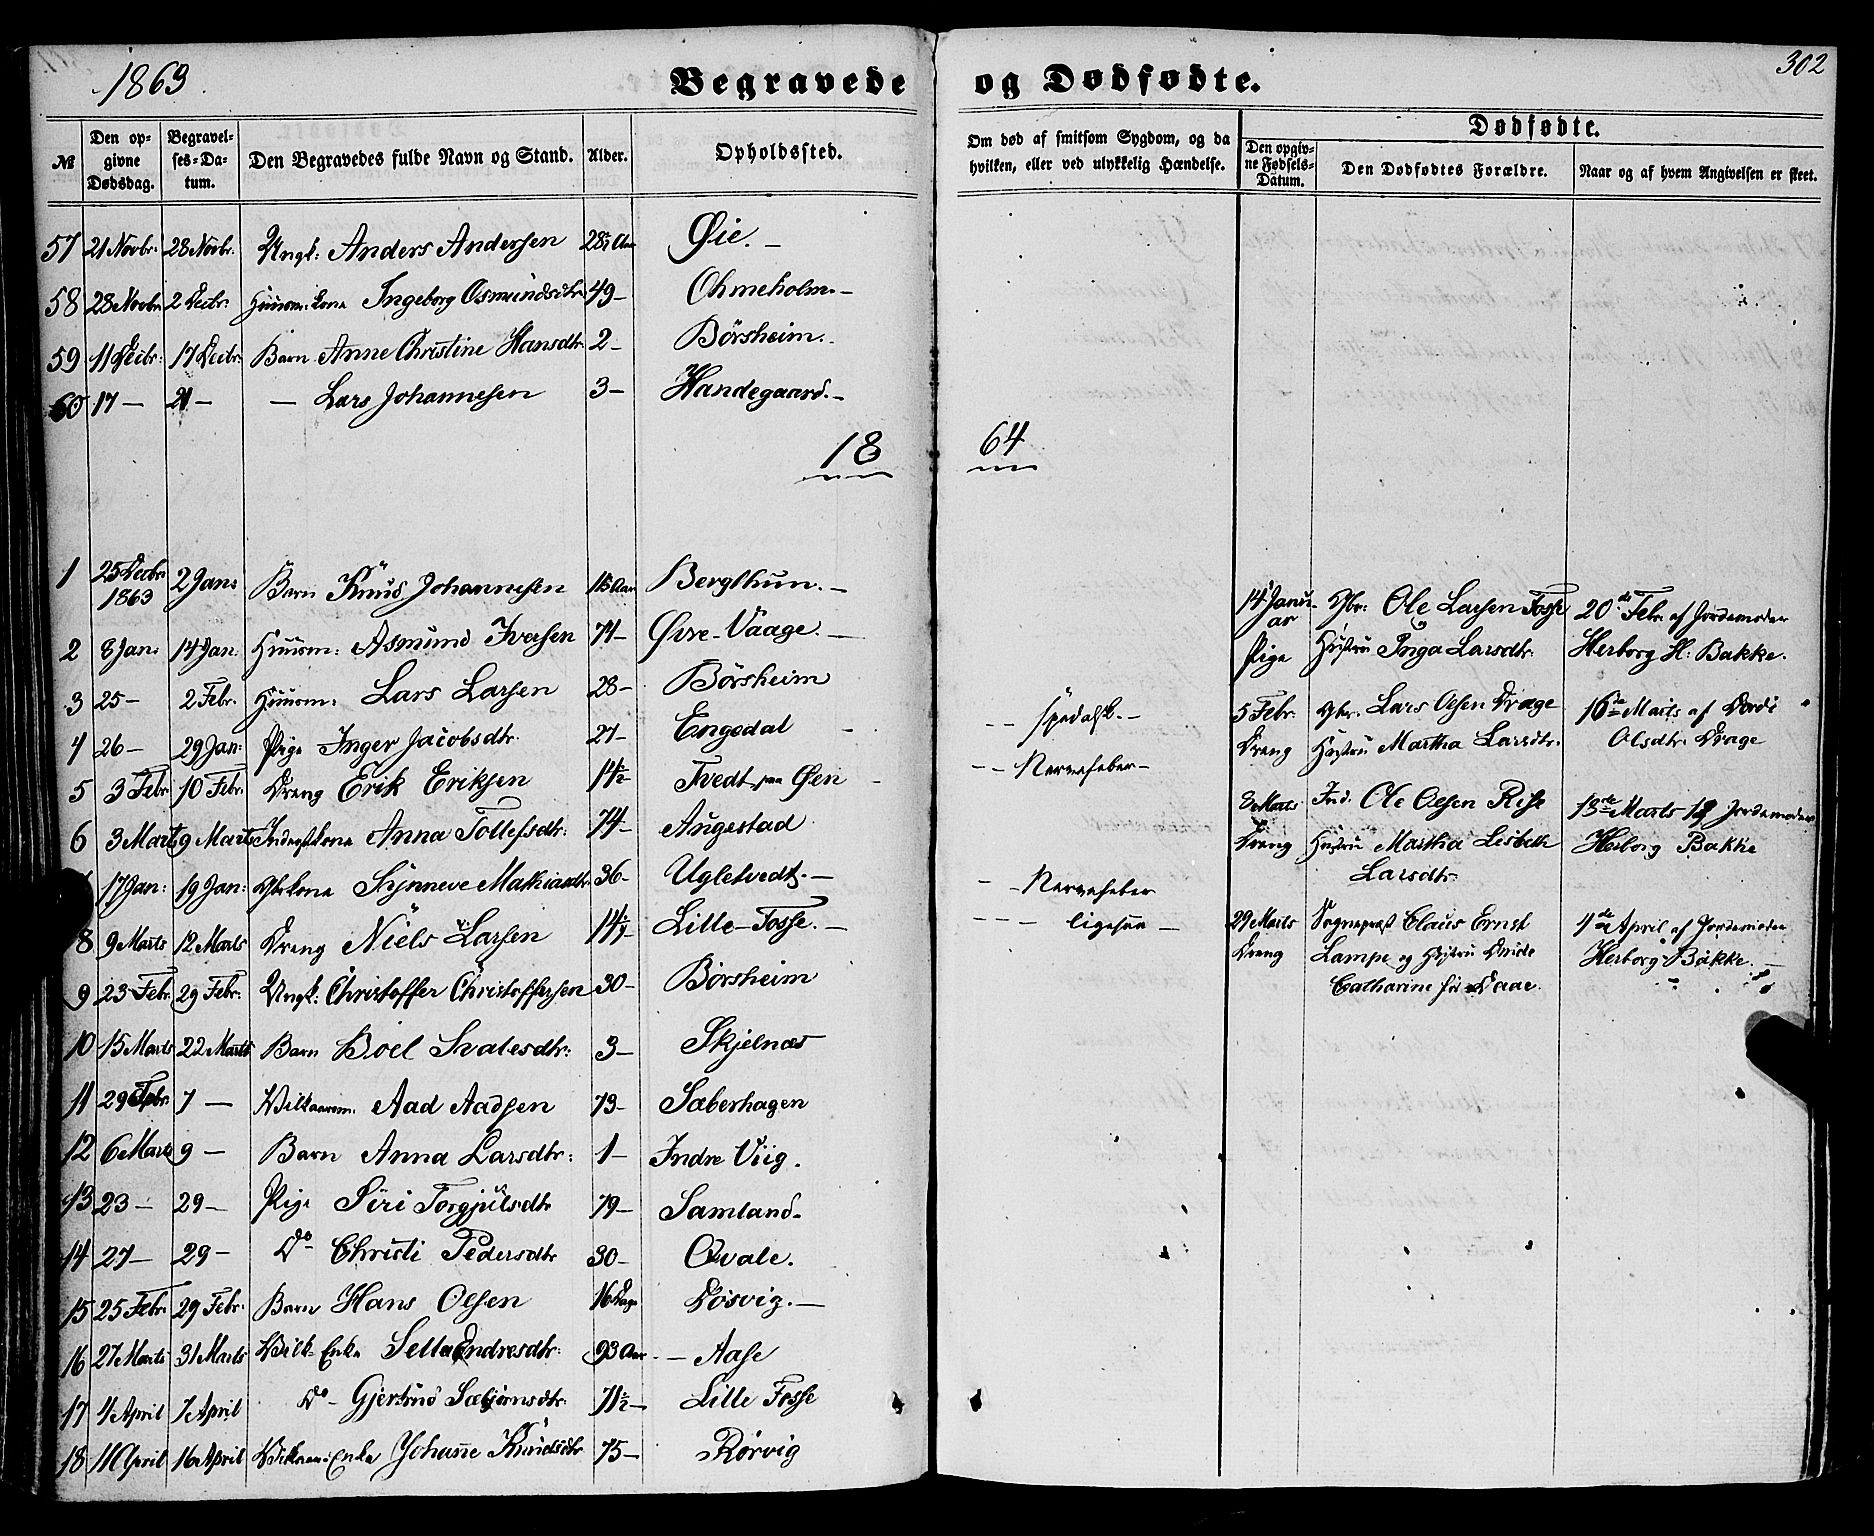 1863. Begravede og Dødfødte. 302
№ Den opgivne Dødsdag. Begravelses-Datum. Den Begravedes fulde Navn og Stand. Alder. Opholdssted. Om død af smitsom Sygdom, og da hvilken, eller ved ulykkelig Hændelse. Dødfødte. Den opgivne Fødsels-Datum. Den Dødfødtes Forældre. Naar og af hvem Angivelsen er skeet.
57 21 Novbr: 28 Novbr. Ungk: Anders Andersen Øie. –
58 28 Novbr 2 Decbr: Ingeborg Osmundsdtr 49 – Ohmeholm. –
59 11 Decbr: 17 Decbr. Barn Anne Christine Hansdtr 2 – Börsheim. –
60 17 – 21 – – Lars Johannesen 3 – Handegaard. –
18 64
1 25 Decbr 1863 2 Jan: Barn Knud Johannesen Bergthun. –
2 8 Jan: 14 Jan: Huusm: Asmund Iversen 71 – Øvre-Vaage. –
3 25 – 2 Febr. Huusm: Lars Larsen 28 – Börsheim
4 26 – 29 Jan: Pige Inger Jacobsdtr 27 – Engedal – – – spedalsk. –
5 3 Febr 10 Febr. Dreng Erik Eriksen 14½ Tvedt paa Øen – – – Nervefeber –
6 3 Marts 9 Marts Anna Tollefsdtr: 74 – Augestad
17 Jan: 19 Jan: Gbrkone Synneve Mathiasdtr 36 – Ugletvedt. – – – Nervefeber
8 9 Marts 12 Marts Dreng Niels Larsen Lille-Fosse. – – – – ligesaa –
9 23 Febr. 29 Febr: Ungk: Christoffer Christoffersen 30 – Börsheim
10 15 Marts 22 Marts Barn Boel Salvesdtr: 3 – Skjelnæs
11 29 Febr 7 – Vilkaarsm. Aad Aadsen 73 – Sæberhagen
12 6 Marts 9 – Barn Anna Larsdtr: 1 – Indre Viig.
13 23 – 29 – Pige Siri Torgjulsdtr 79 – Samland.
14 27 – 29 – Do – Christi Pedersdtr 30 – Qvale.
15 25 Febr. 29 Febr. Barn Hans Olsen 16 Dage Lösvig. –
16 27 Marts 31 Marts Vilk. Enke Endresdtr: 93 Aar – Aase
17 4 April 7 April Do – Gjertrud Sæbjørnsdtr: 71½ – Lille Fosse
18 11 April 16 April Enke Johanne Knudsdtr 75 – Rörvig
14 Januar Gbr: Ole Larsen Fosse 20de Febr. af Jordemoder
Pige Hustru Inga Larsdtr. Herborg H: Bakke.
5 Febr. Gbr. Lars Olsen Drage 16de Marts af
Dreng Hustru Martha Larsdtr. Olsdtr. Drage
8 Marts Ind. Ole Olsen Rise 13de Marts Jordemoder
Dreng Hustru Martha Lisbeth Herborg Bakke
Larsdtr
29 Marts Sognepræst Claus Ernst 4de April af Jordemoder
Dreng Lampe og Hustru Herborg Bakke. –
Catharine født Daae.